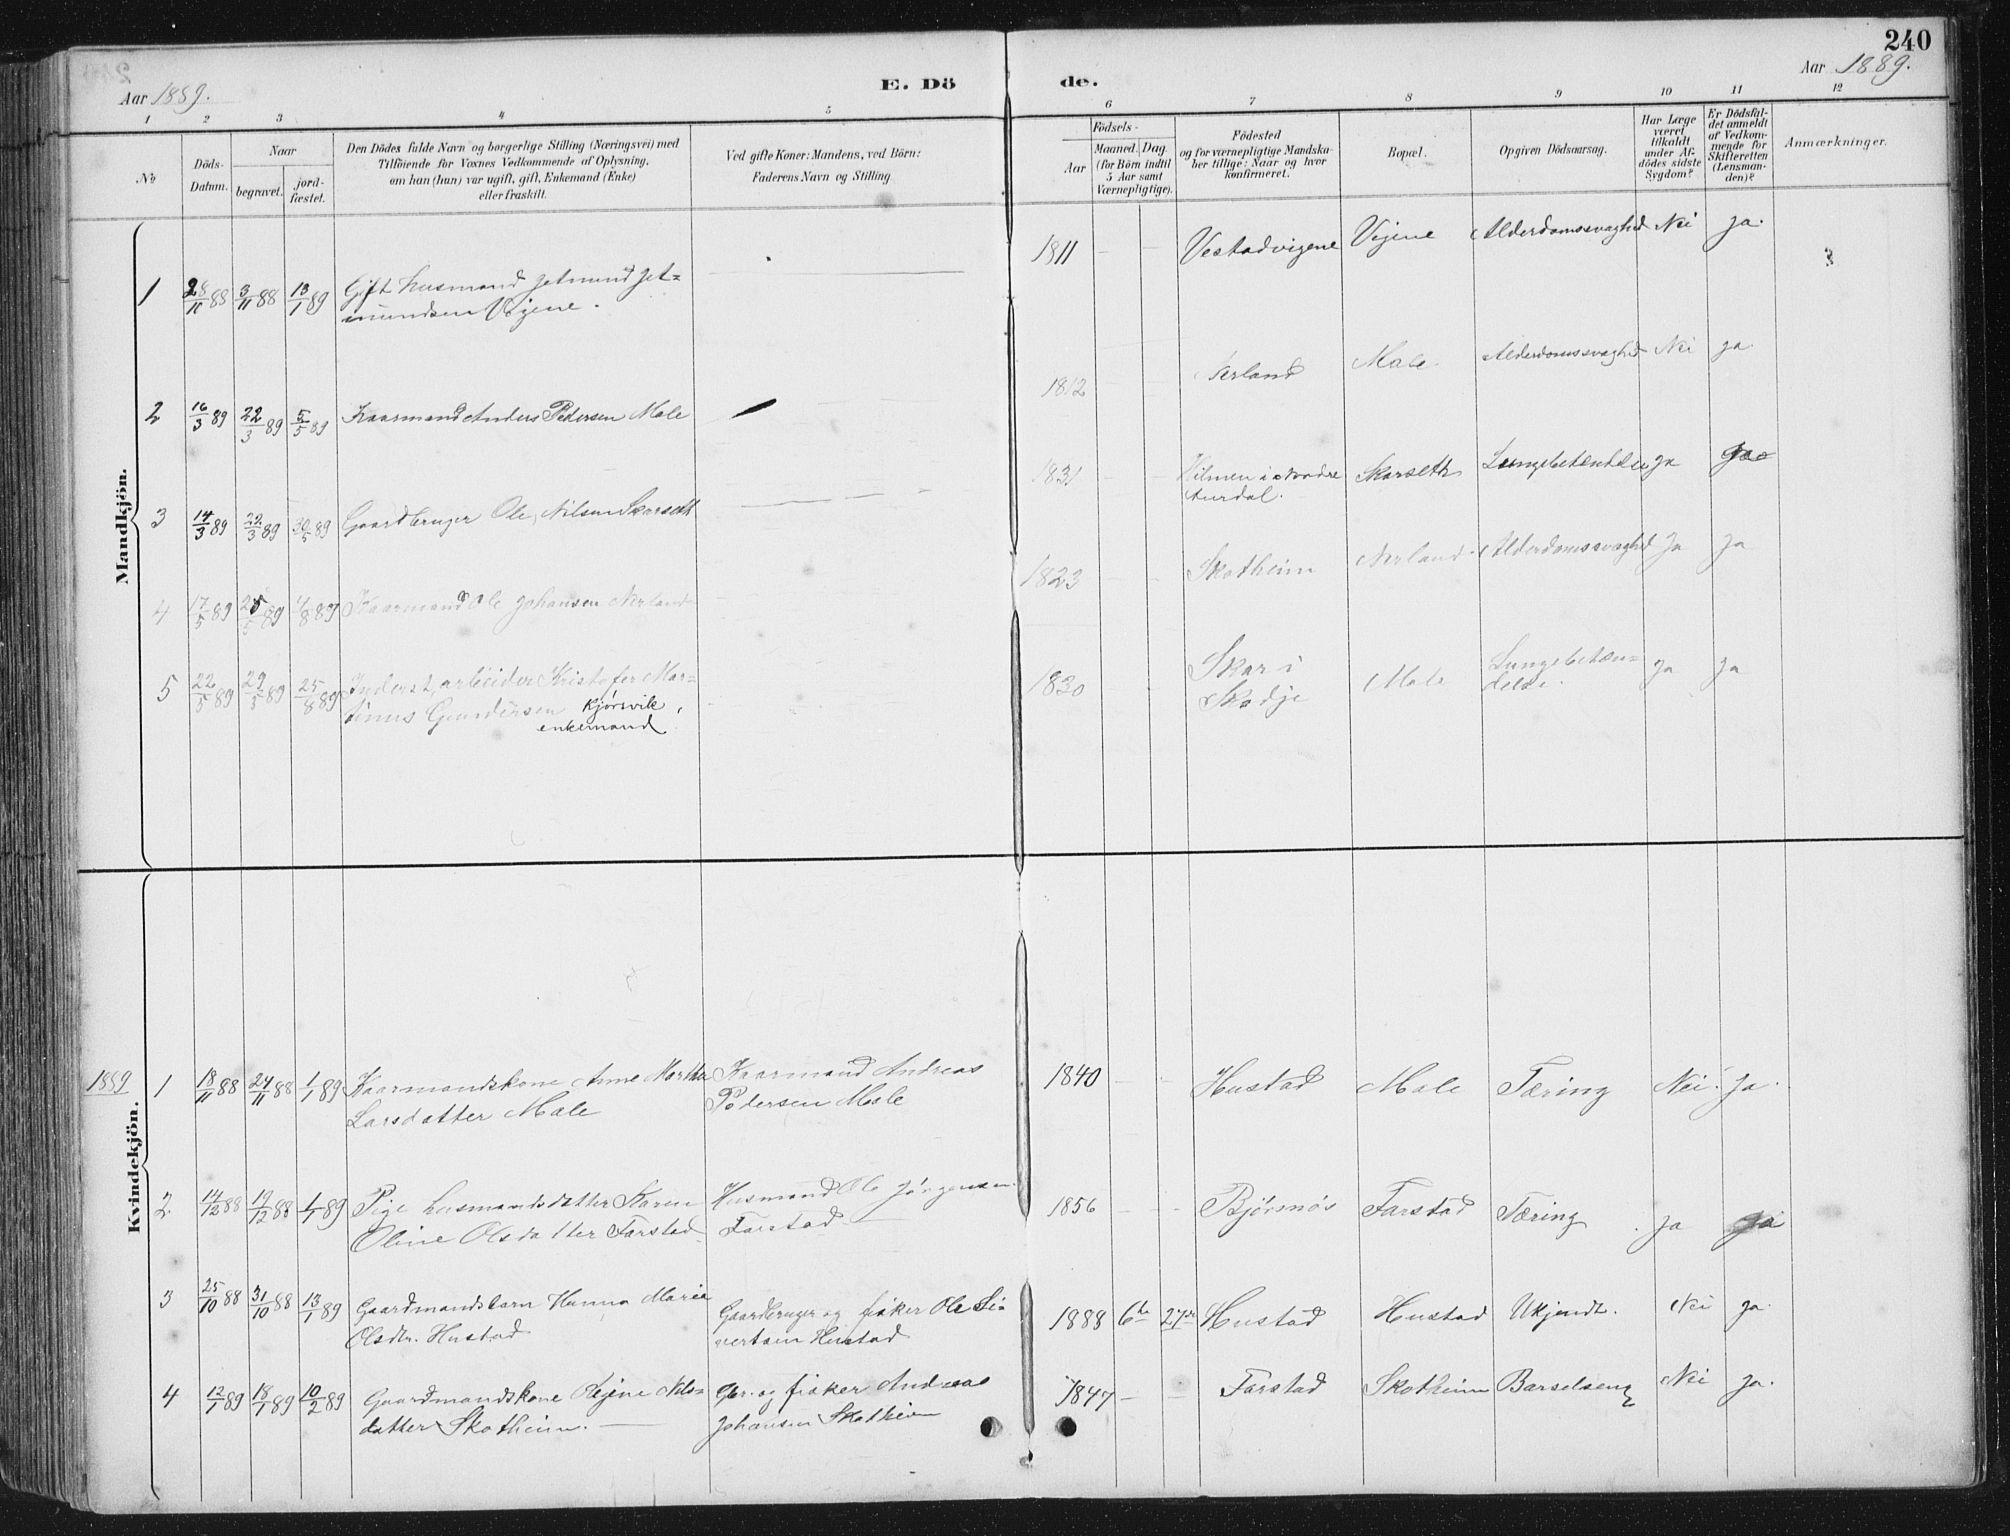 240
Aar 1889.
E. Döde.
Aar 1889.
1 2 3 4 5 6 7 8 9 10 11 12
No
Döds-Datum.
Naar
begravet.
jord-fæstet.
Den Dödes fulde Navn og borgerlige Stilling (Næringsvei) med
Tilföiende for Voxnes Vedkommende af Oplysning,
om han (hun) var ugift, gift, Enkemand (Enke)
eller fraskilt.
Ved gifte Koner: Mandens, ved Börn:
Faderens Navn og Stilling.
Födsels-
Aar
Maaned. Dag.
(for Börn indtil
5 Aar samt
Værnepligtige).
Födested
og for værnepligtige Mandska-
ber tillige: Naar og hvor
konfirmeret.
Bopæl.
Opgiven Dödsaarsag.
Har Læge
været
tilkaldt
under Af-
dödes sidste
Sygdom?
Er Dödsfal-
det anmeldt
af Vedkom-
mende for
Skifteretten
(Lensman-
den)?
Anmærkninger.
Mandkjön.
1 28/10 88 3/11 88 13/1 89 Gift Husmand Jetmund Jet=
mundsen Vigene. 1811 Vestadvigene Vigene Alderdomssvaghed Nei ja.
2 16/3 89 22/3 89 5/5 89 Kaarmand Anders Pedersen Male 1812 Nerland Male. Alderdomssvaghed Nei ja
3 14/3 89 22/3 89 30/5 89 Gaardbruger Ole Nilsen Skarseth 1831 Skarseth Lungebetændelse ja ja
4 17/5 89 25/5 89 4/8 89 Kaarmand Ole Johansen Nerland 1823 Skotheim Nerland Alderdomssvaghed ja ja
5 22/5 89 29/5 89 25/8 89 Inderst, arbeider Kristofer Mar=
tinus Gundersen Kjørsvik,
enkemand 1830 Skar i
Skodje Male Lungebetæn=
delse. ja ja
Kvindekjön.
1889
1 18/11 88 24/11 88 1/1 89 Kaarmandskone Anne Martha
Larsdatter Male Kaarmand Andreas
Pedersen Male 1840 Hustad Male Tæring Nei. ja.
2 14/12 88 19/12 88 1/1 89 Pige husmandsdatter Karen
Oline Olsdatter Farstad Husmand Ole Jörgensen
Farstad 1856 Bjørnmös Farstad Tæring ja ja
3 25/10 88 31/10 88 13/1 89 Gaardmandsbarn Hanna Marie
Olsdtr. Hustad Gaardbruger og fisker Ole Si=
vertsen Hustad 1888 6te 27de Hustad Hustad Ukjendt. Nei ja.
4 12/1 89 18/1 89 10/2 89 Gaardmandskone Rejine Nils=
datter Skotheim. Gbr. og fisker Andreas
Johansen Skotheim 1847 Farstad Skotheim Barselseng Nei ja.